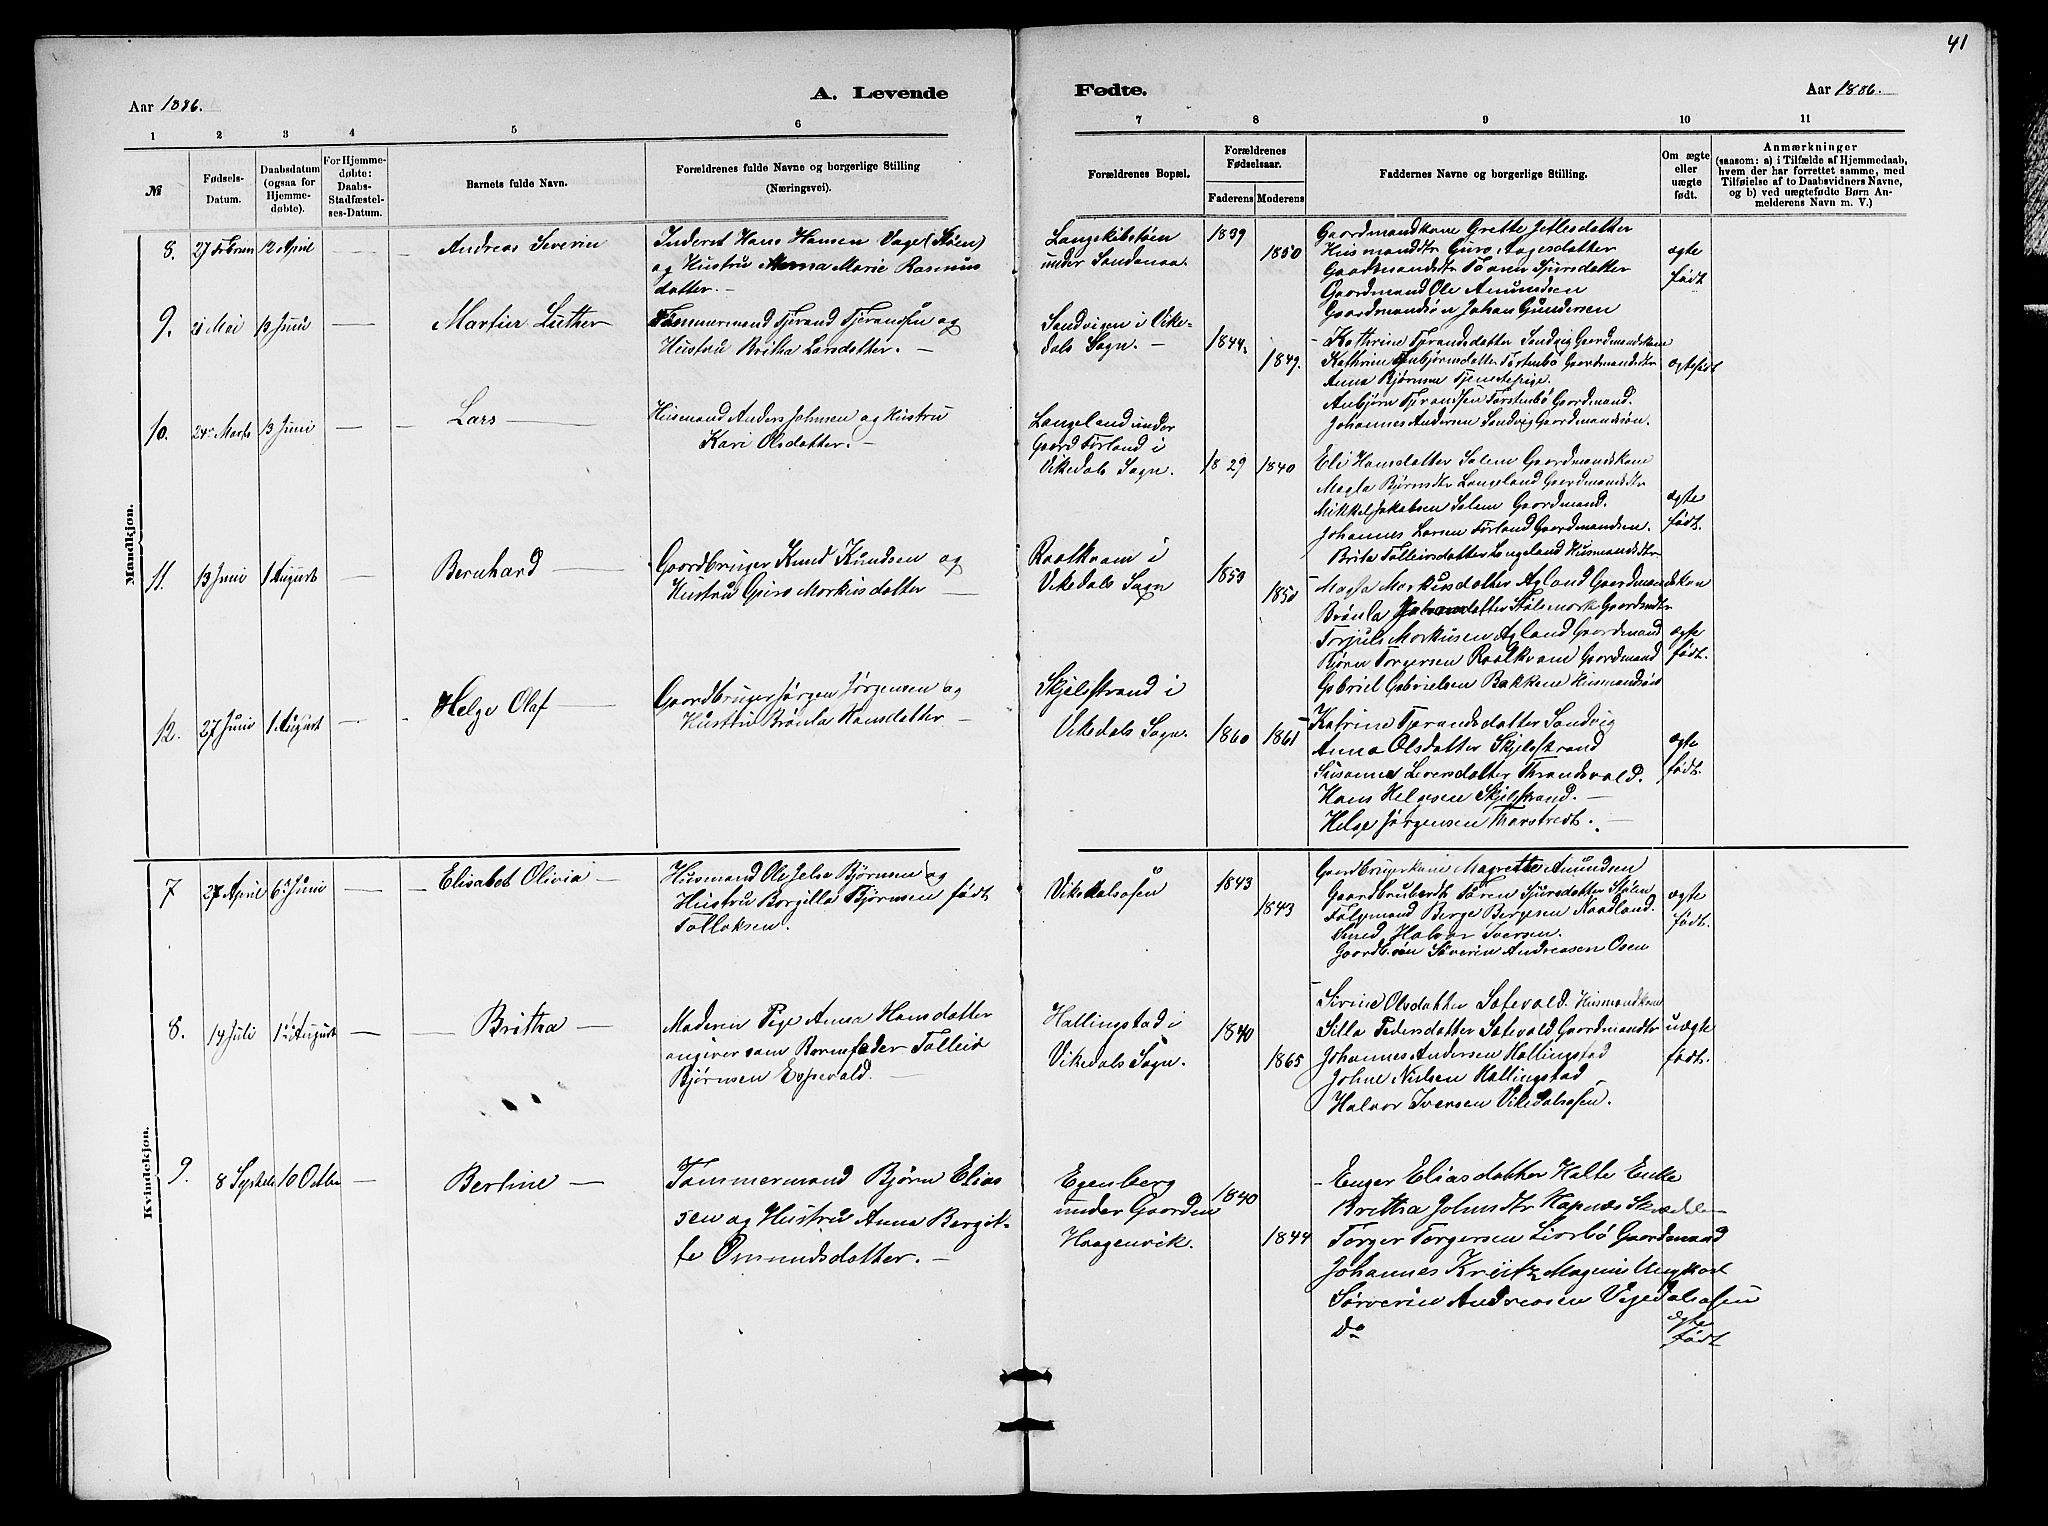 41
Aar 1886.
A. Levende
Fødte.
Aar 1886.
1 2 3 4 5 6 7 8 9 10 11
№
Fødsels-
Datum.
Daabsdatum
(ogsaa for
Hjemme-
døbte).
For Hjemme-
døbte:
Daabs-
Stadfæstel-
ses-Datum.
Barnets fulde Navn.
Forældrenes fulde Navne og borgerlige Stilling
(Næringsvei).
Forældrenes Bopæl.
Forældrenes
Fødselsaar.
Faderens Moderens
Faddernes Navne og borgerlige Stilling.
Om ægte
eller
uægte
født.
Anmærkninger
(saasom: a) i Tilfælde af Hjemmedaab,
hvem der har forrettet samme, med
Tilføielse af to Daabsvidners Navne,
og b) ved uægtefødte Børn An-
melderens Navn m. V.)
Mandkjøn.
8. 27 Februar 12 April — Andreas Severin
Inderst Hans Hansen Vage (Støen)
og Hustru Anna Marie Rasmus
datter. —
Langskibstøen
under Sandenaa.
1839
1850
Gaardmandkone Grette Jetlesdatter
Husmanddtr Guro Aagesdatter
Gaardmandsdtr Taaren Sjursdatter
Gaardmand Ole Amundsen
Gaardmandsøn Johan Gundersen
ægte
født
9. 21 Mai 13 Juni — Martin Luther
Tømmermand Tjerand Tjerandsen og
Hustru Britha Larsdatter. —
Sandvigen i Vike-
dals Sogn. —
1844.
1849.
Kathrine Tjerandsdatter Sandvig Gaardmandkone
Kathrine Anbjørnsdatter Førstenbø Gaardmandsdtr
Anna Bjørnsen Tjenestepige.
Anbjørn Tjerandsen Førstenbø Gaardmand.
Johannes Andersen Sandvig Gaardmandsøn.
ægtefødt
10. 24de Marts 13 Juni — Lars —
Husmand Anders Johnsen og Hustru
Kari Olsdatter. —
Langeland under
Gaard Førland i
Vikedals Sogn.
1829 1840
Eli Hansdatter Salem Gaardmandskone
Magla Bjørnsdtr Langeland Gaardmandsdtr
Mikkel Jakobsen Salem Gaardmand.
Johannes Larsen Førland Gaardmandsen.
Brita Tolleivsdatter Langeland Husmandsdtr
ægte
født.
11. 13 Juni 1 August — Bernhard —
Gaardbruger Knud Knudsen og
Hustru Guro Markusdatter —
Raalkvam i
Vikedals Sogn
1853
1850
Magla Markusdatter Agland Gaardmandskon
Brønla
Torjuls Markusen Agland Gaardmand
Bjørn Torgersen Raalkvam Gaardmand
Gabriel Gabrielsen Bakkene Husmandsøn
ægte
født.
12. 27 Juni 1 August — Helge Olaf —
Gaardbruger Jørgen Jørgensen og
Hustru Brønla Hansdatter —
Skjelstrand i
Vikedals Sogn.
1860 1861
Katrine Tjerandsdatter Sandvig
Anna Olsdatter Skjelstrand
Susanne Leversdatter Thrandsvald.
Hans Helgesen Skjelstrand. —
Helge Jørgensen
ægte
født.
Kvindekjøn.
7 27 April 6te Juni — Elisabet Olivia —
Husmand Ole Jelsa Bjørnsen og
Hustru Borgilla Bjørnsen født
Tolloksen.
Vikedalsosen
1843
1843
Gaardbrugerkone Magrette Amundsen
Taaren Sjursdatter Stølen
Berge Bergesen Naadland.
Smed Halvor Iversen.
Gaardb.søn Severin Andreasen Osen
ægte
født.
8. 14 Juli 1ste August — Britha —
Moderen Pige Anna Hansdatter
angiver som Barnefader Tolleiv
Bjørnsen Espevald. —
Hallingstad i
Vikedals Sogn.
1840
1865
Sirine Olsdatter Søtevold. Husmandkone
Silla Pedersdatter Søtevold Gaardmandtr
Johannes Andersen Hallingstad
Johne Nielsen Hallingstad
Halvor Iversen Vikedalsosen.
uægte
født.
9. 8 Septebr 10 Octbr — Bertine —
Tømmermand Bjørn Elias
sen og Hustru Anna Bergit-
te Omundsdatter. —
Egenberg
under Gaarden
Haagenvik.
1840
1844
Enger Eliasdatter Halte Enke
Britha Johnsdtr Hapnæs
Torger Torgersen Liarbø Gaardmand
Johannes Kreutz Magnus Ungkarl
Sørverin Andreasen Vigedalsosen
do
ægte
født